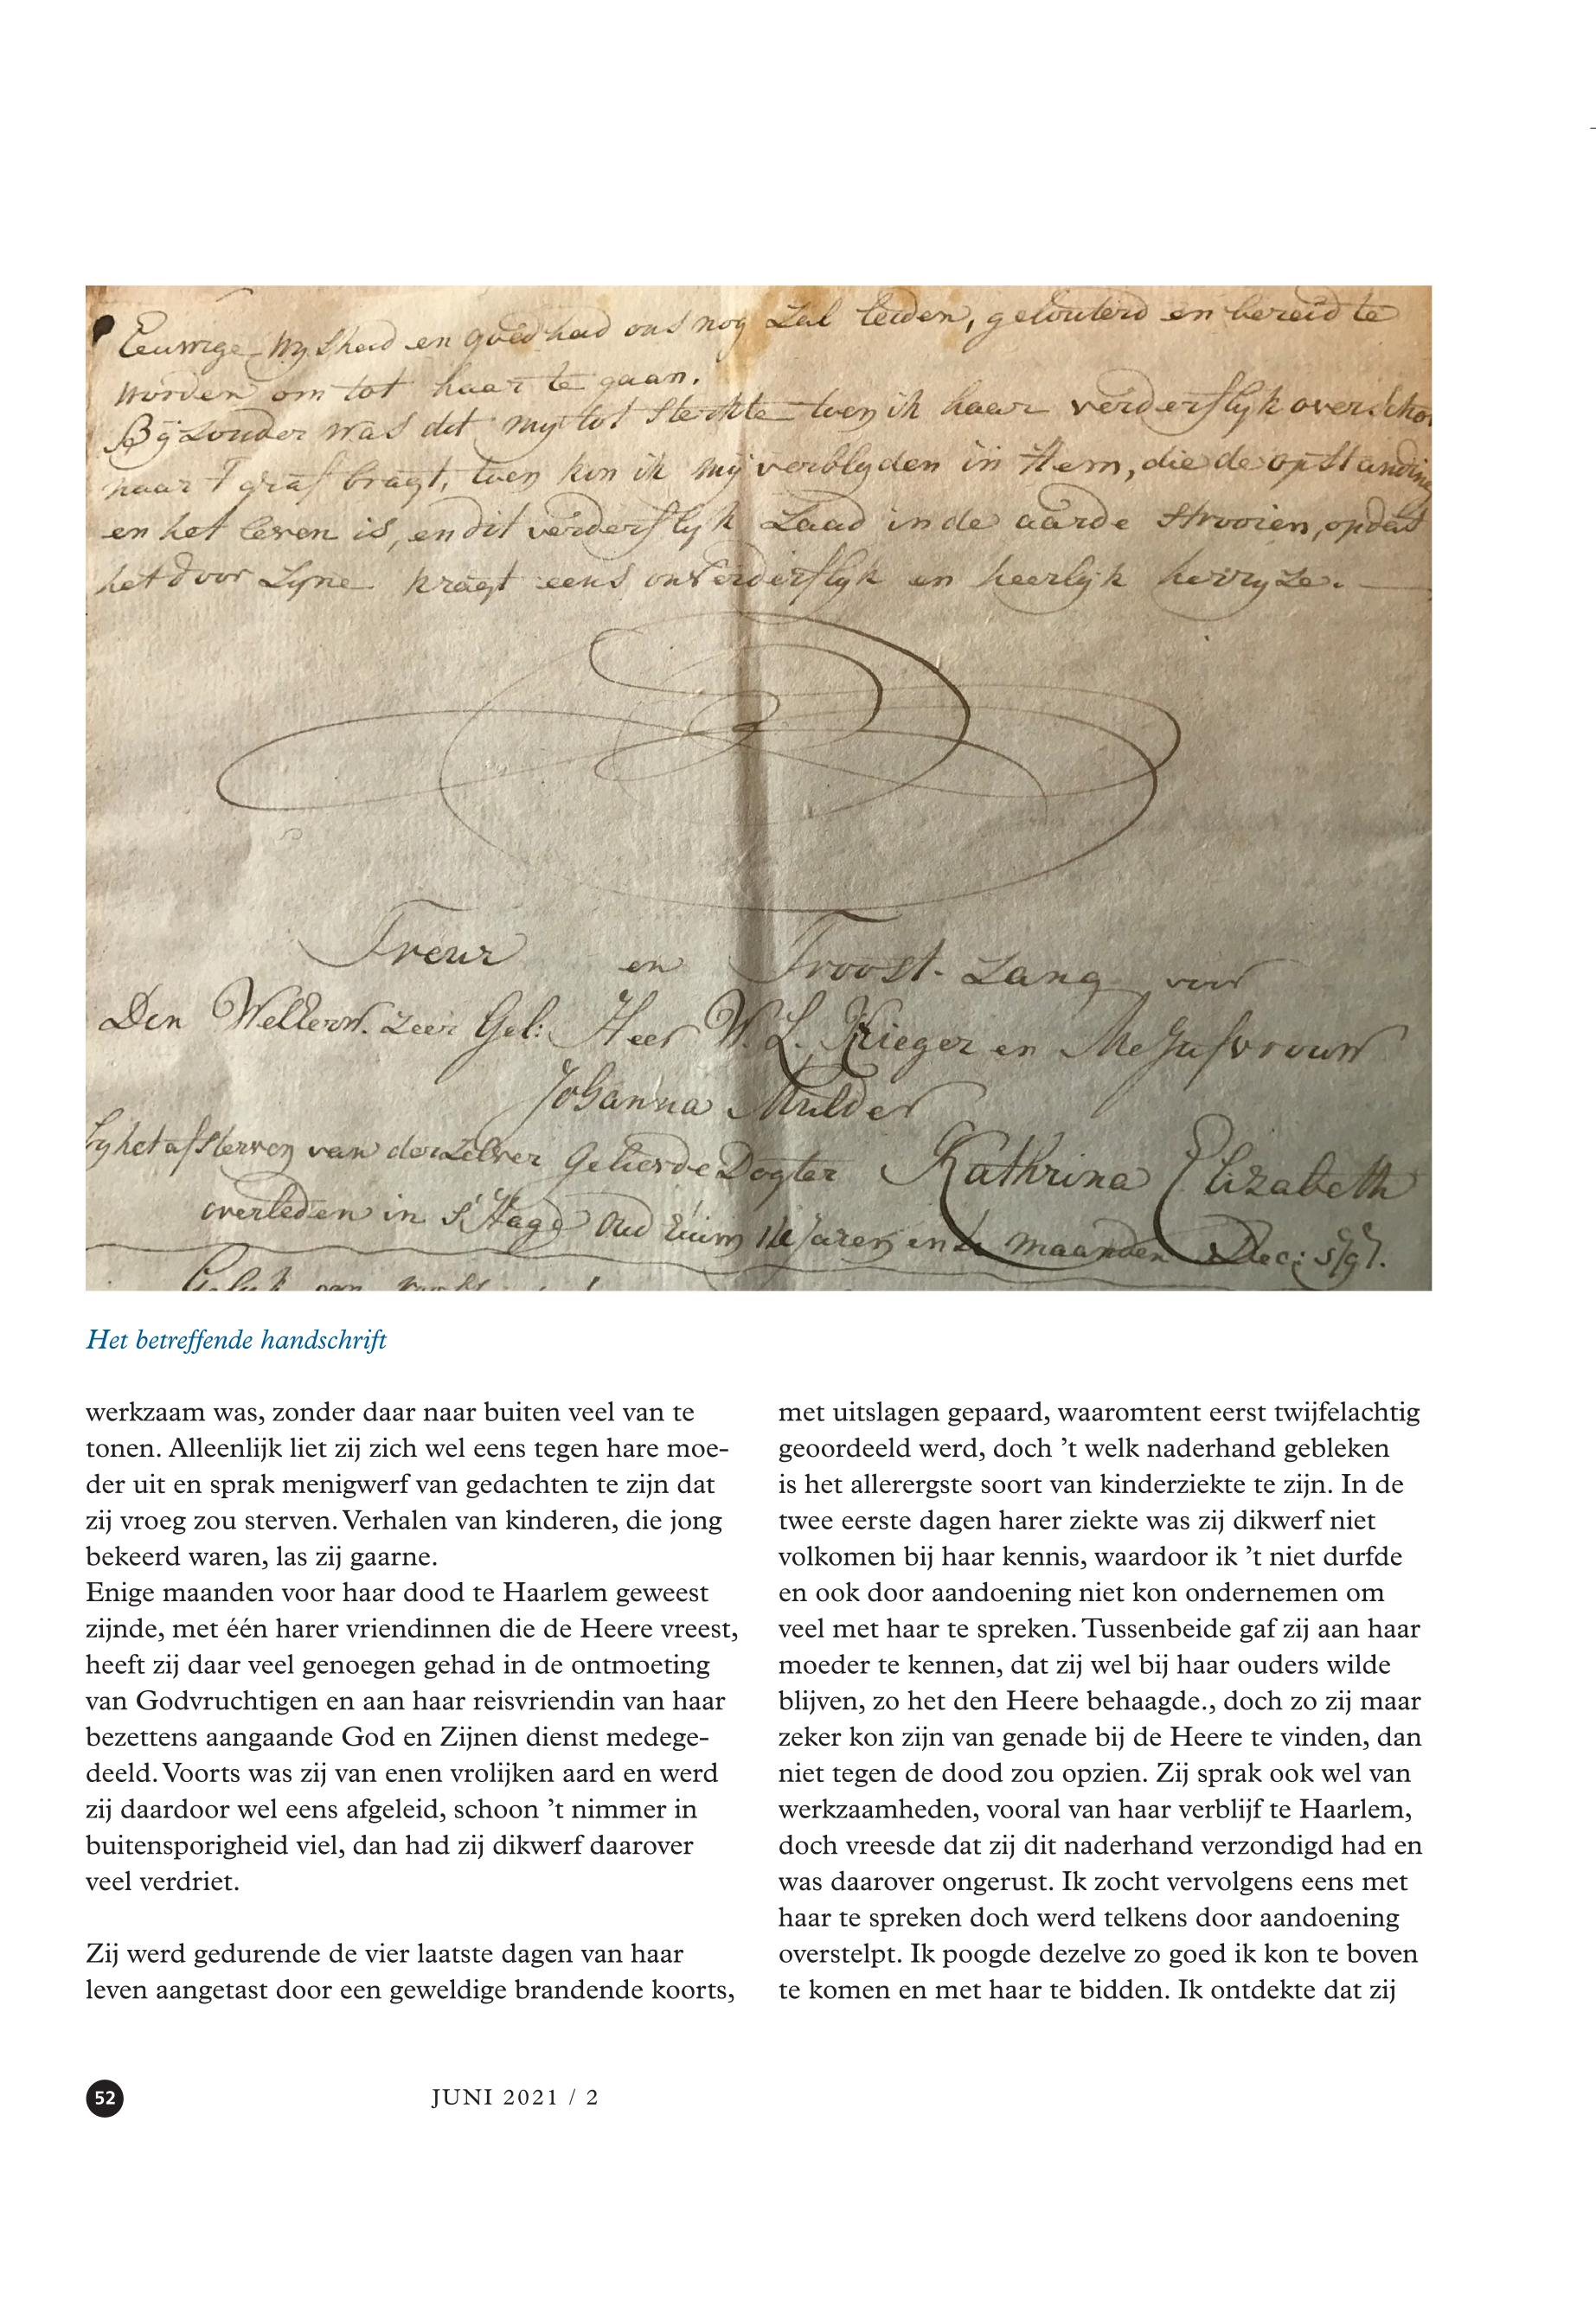 Eeuwige Wysheid en goedheid ons nog zal leiden, gelouterd en bereid te
worden om tot haar te gaan.
Byzonder was dit my tot sterkte toen ik haar verderflyk overscho
naar 't graf bragt, toen kon ik mij verblyden in Hem, die de opstanding
en het leven is, en dit verderflyk Zaad in de aarde strooien, opdat
het door Zyne kragt eens onverderflyk en heerlyk herryze.
Treur en Troost-Zang voor
Den WelEerw. Zeer Gel: Heer W. L. Krieger en Mejufvrouw
Johanna Mulder
by het afsterven van derzelver Geliefde Dogter Kathrina Elizabeth
overleden in s'Hage Oud ruim Jaren en maanden Dec:
Het betreffende handschrift
werkzaam was, zonder daar naar buiten veel van te
tonen. Alleenlijk liet zij zich wel eens tegen hare moe-
der uit en sprak menigwerf van gedachten te zijn dat
zij vroeg zou sterven. Verhalen van kinderen, die jong
bekeerd waren, las zij gaarne.
Enige maanden voor haar dood te Haarlem geweest
zijnde, met één harer vriendinnen die de Heere vreest,
heeft zij daar veel genoegen gehad in de ontmoeting
van Godvruchtigen en aan haar reisvriendin van haar
bezettens aangaande God en Zijnen dienst medege-
deeld. Voorts was zij van enen vrolijken aard en werd
zij daardoor wel eens afgeleid, schoon 't nimmer in
buitensporigheid viel, dan had zij dikwerf daarover
veel verdriet.
Zij werd gedurende de vier laatste dagen van haar
leven aangetast door een geweldige brandende koorts,
met uitslagen gepaard, waaromtent eerst twijfelachtig
geoordeeld werd, doch 't welk naderhand gebleken
is het allerergste soort van kinderziekte te zijn. In de
twee eerste dagen harer ziekte was zij dikwerf niet
volkomen bij haar kennis, waardoor ik 't niet durfde
en ook door aandoening niet kon ondernemen om
veel met haar te spreken. Tussenbeide gaf zij aan haar
moeder te kennen, dat zij wel bij haar ouders wilde
blijven, zo het den Heere behaagde., doch zo zij maar
zeker kon zijn van genade bij de Heere te vinden, dan
niet tegen de dood zou opzien. Zij sprak ook wel van
werkzaamheden, vooral van haar verblijf te Haarlem,
doch vreesde dat zij dit naderhand verzondigd had en
was daarover ongerust. Ik zocht vervolgens eens met
haar te spreken doch werd telkens door aandoening
overstelpt. Ik poogde dezelve zo goed ik kon te boven
te komen en met haar te bidden. Ik ontdekte dat zij
52
JUNI 2021 / 2